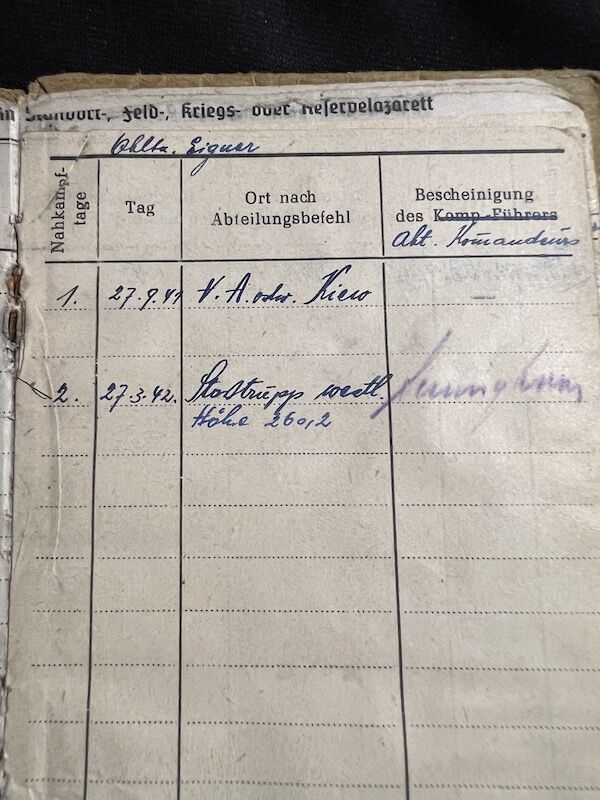 Standort-, Feld-, Kriegs- oder Reservelazarett
Obltn. Eigner
Nahkampf-
tage
Tag
Ort nach
Abteilungsbefehl
Bescheinigung
des Komp.-Führers
Abt. Komandeurs
1. 27.9.41 V. A. ostw. Kiew —
2. 27.3.42. Stoßtrupp westl.
Höhe 260,2